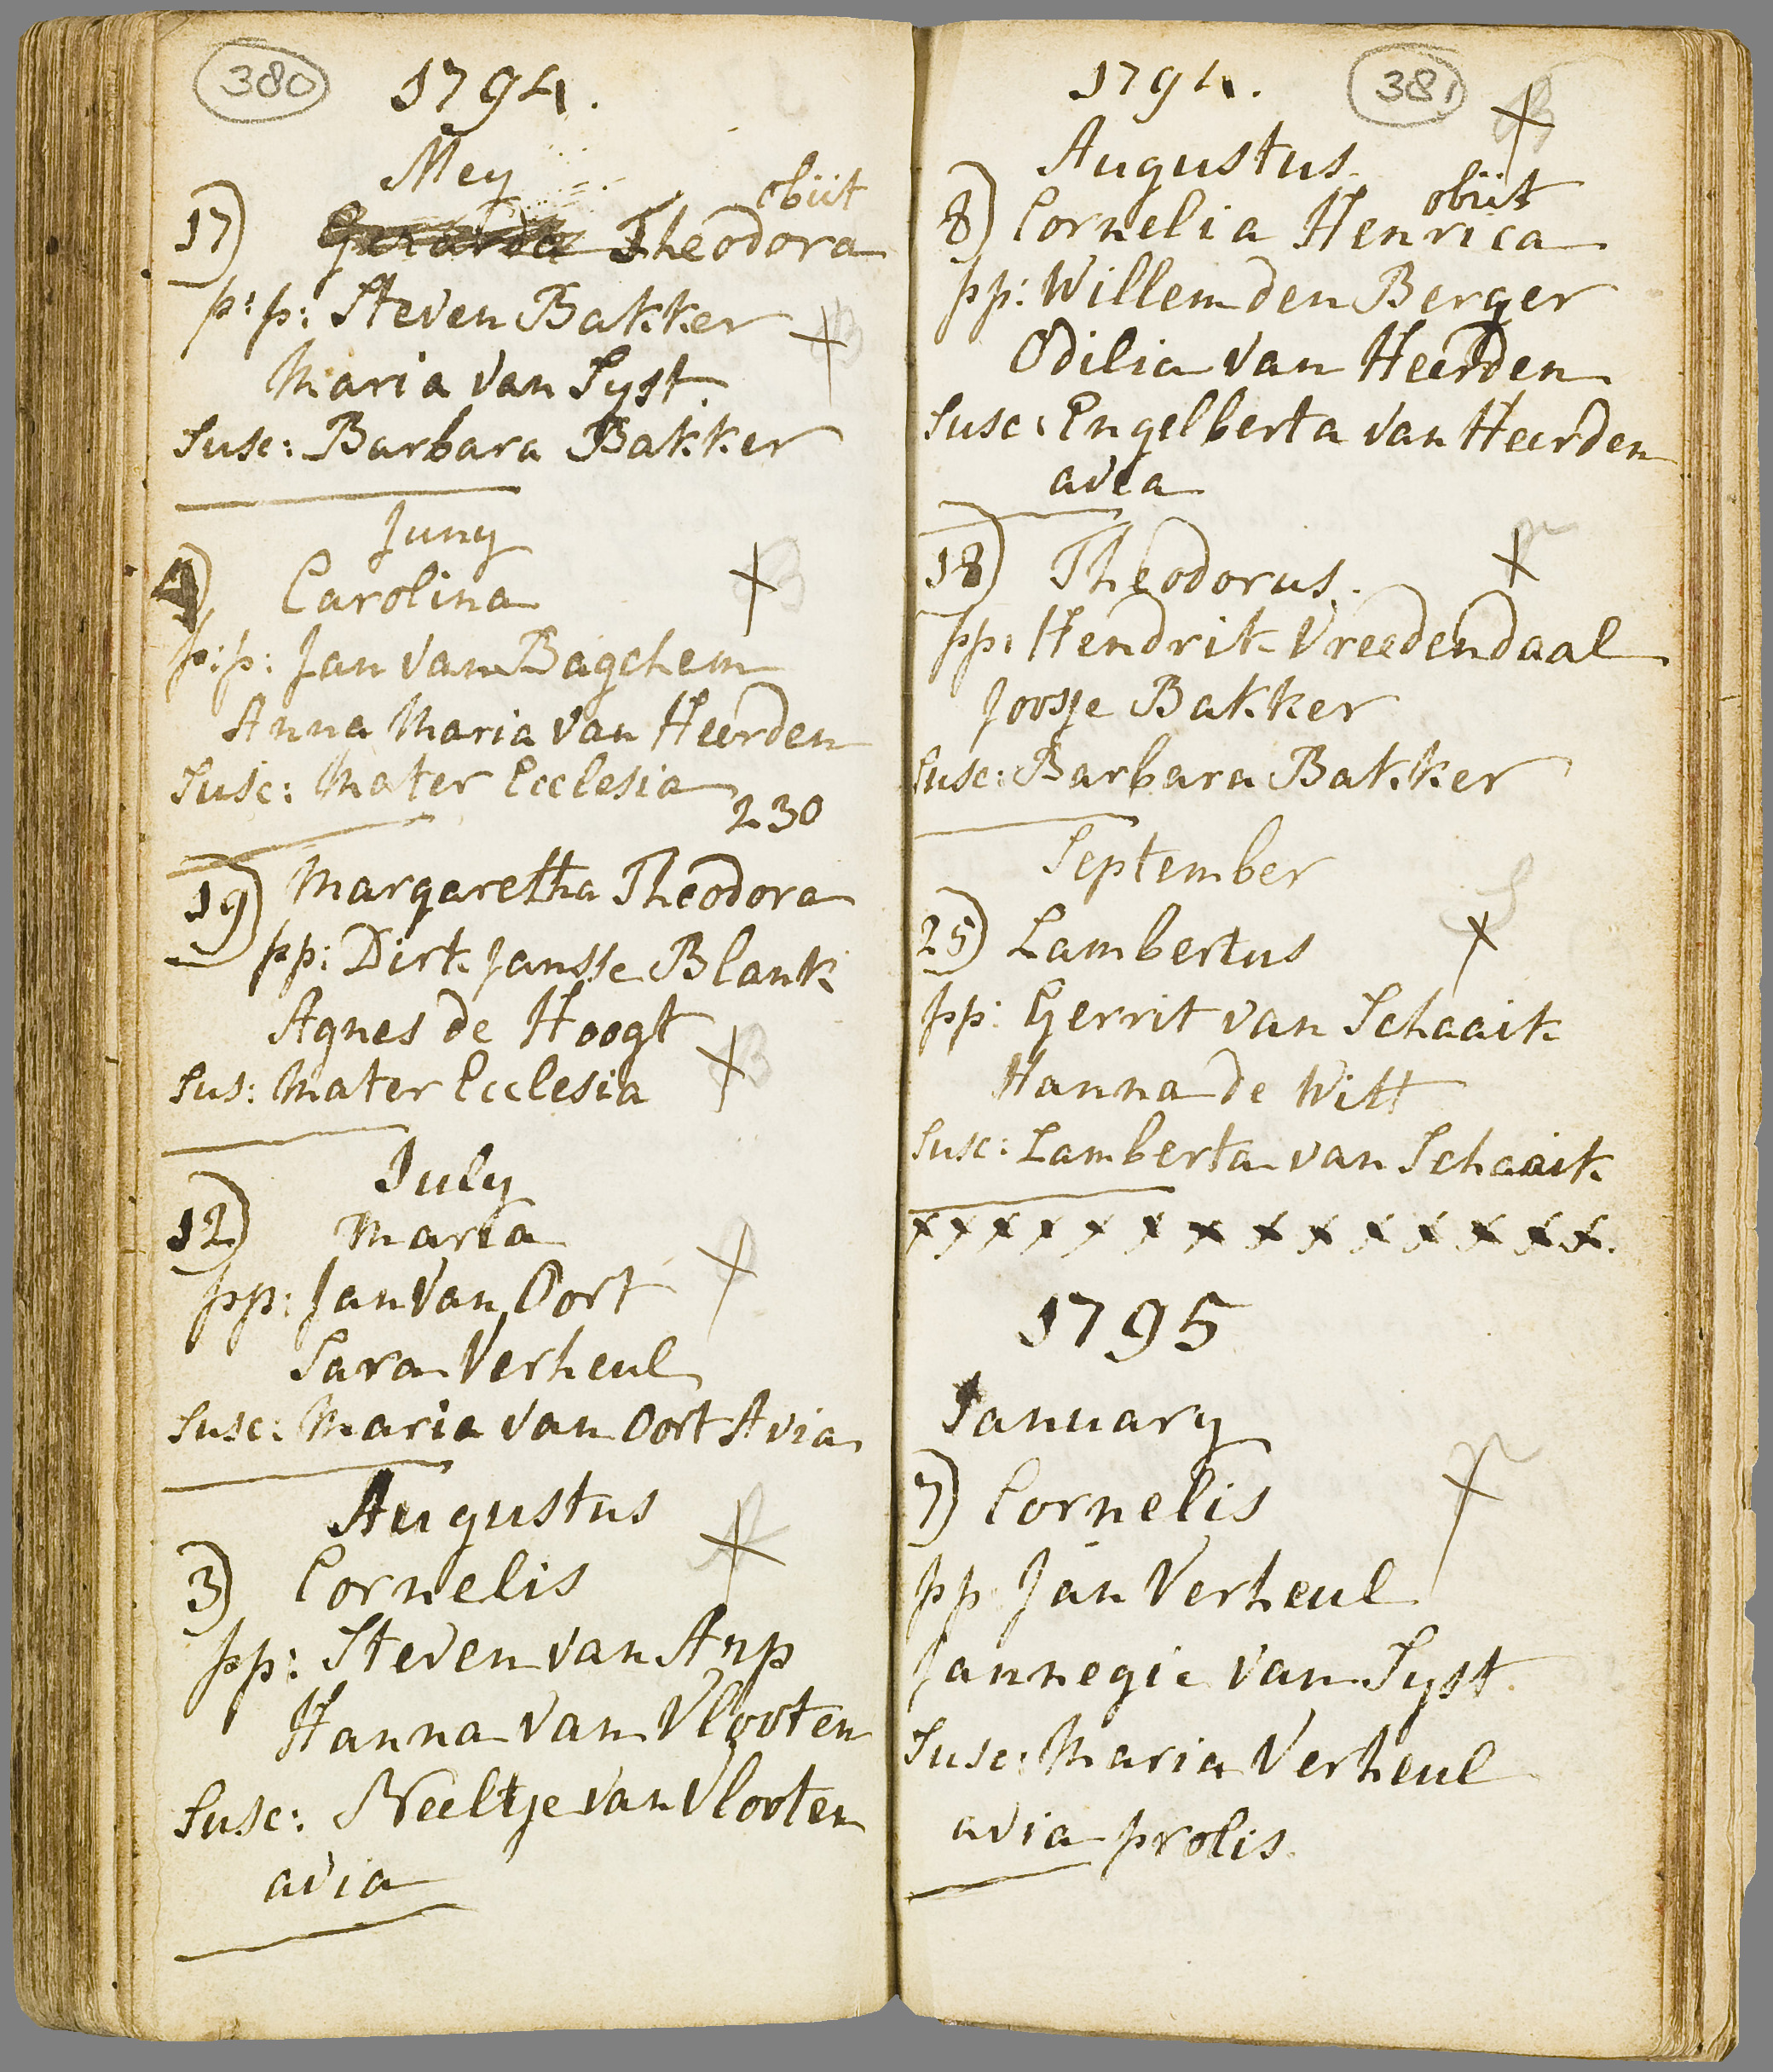 380 1794.
Mey
obiit
17) Gerarda Theodora
p:p: Steven Bakker
Maria van Syst.
Susc: Barbara Bakker
Juny
4) Carolina
p:p: Jan van Bagchem
Anna Maria van Heerden
Susc: Mater Ecclesia
230
19) Margaretha Theodora
pp: Dirk Jansse Blank
Agnes de Hoogt
Sus: Mater Ecclesia
July
12) Maria
pp: Jan van Oort
Sara Verheul
Susc: Maria van Oort Avia
Augustus
3) Cornelis
pp: Steven van Arp
Hanna van Vlooten
Susc: Neeltje van Vlooten
avia
1794. 381
Augustus.
obiit
8) Cornelia Henrica
pp: Willem den Berger
Odilia van Heerden
Susc: Engelberta van Heerden
avia
18) Theodorus.
pp: Hendrik Vreedendaal
Joosje Bakker
Susc: Barbara Bakker
September
25) Lambertus
pp: Gerrit van Schaaik
Hanna de Witt
Susc: Lamberta van Schaaik
x x x x x x x x x x x x x x.
1795
January
7) Cornelis
pp Jan Verheul
Jannegie van Syst.
Susc: Maria Verheul
avia prolis.